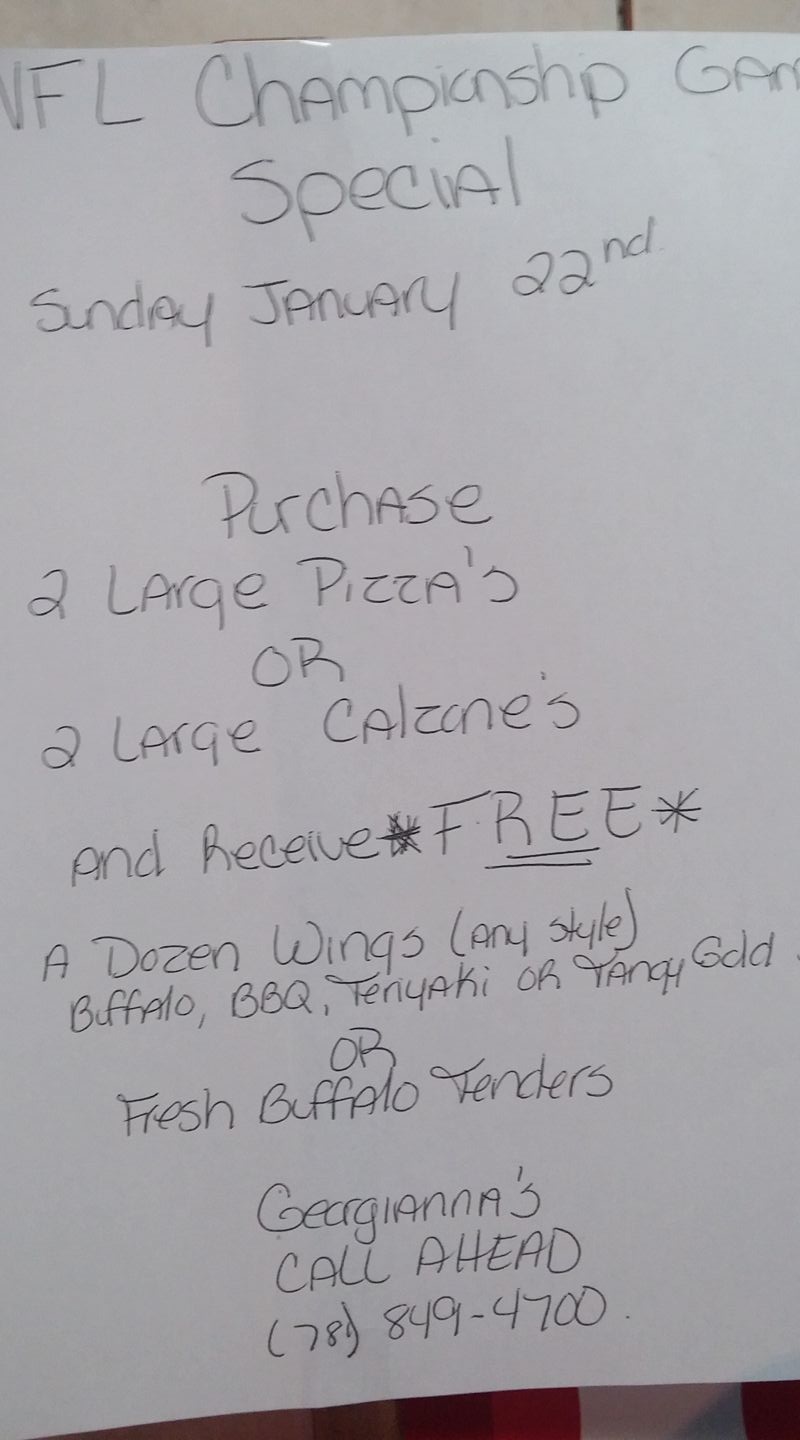 NFL Championship Gam
Special
Sunday January 22nd
Purchase
2 Large Pizza's
OR
2 Large Calzone's
And Receive *FREE*
A Dozen Wings (Any style)
Buffalo, BBQ, Teriyaki OR Tangy Gold
OR
Fresh Buffalo Tenders
Georgianna's
CALL AHEAD
(781) 849-4700.